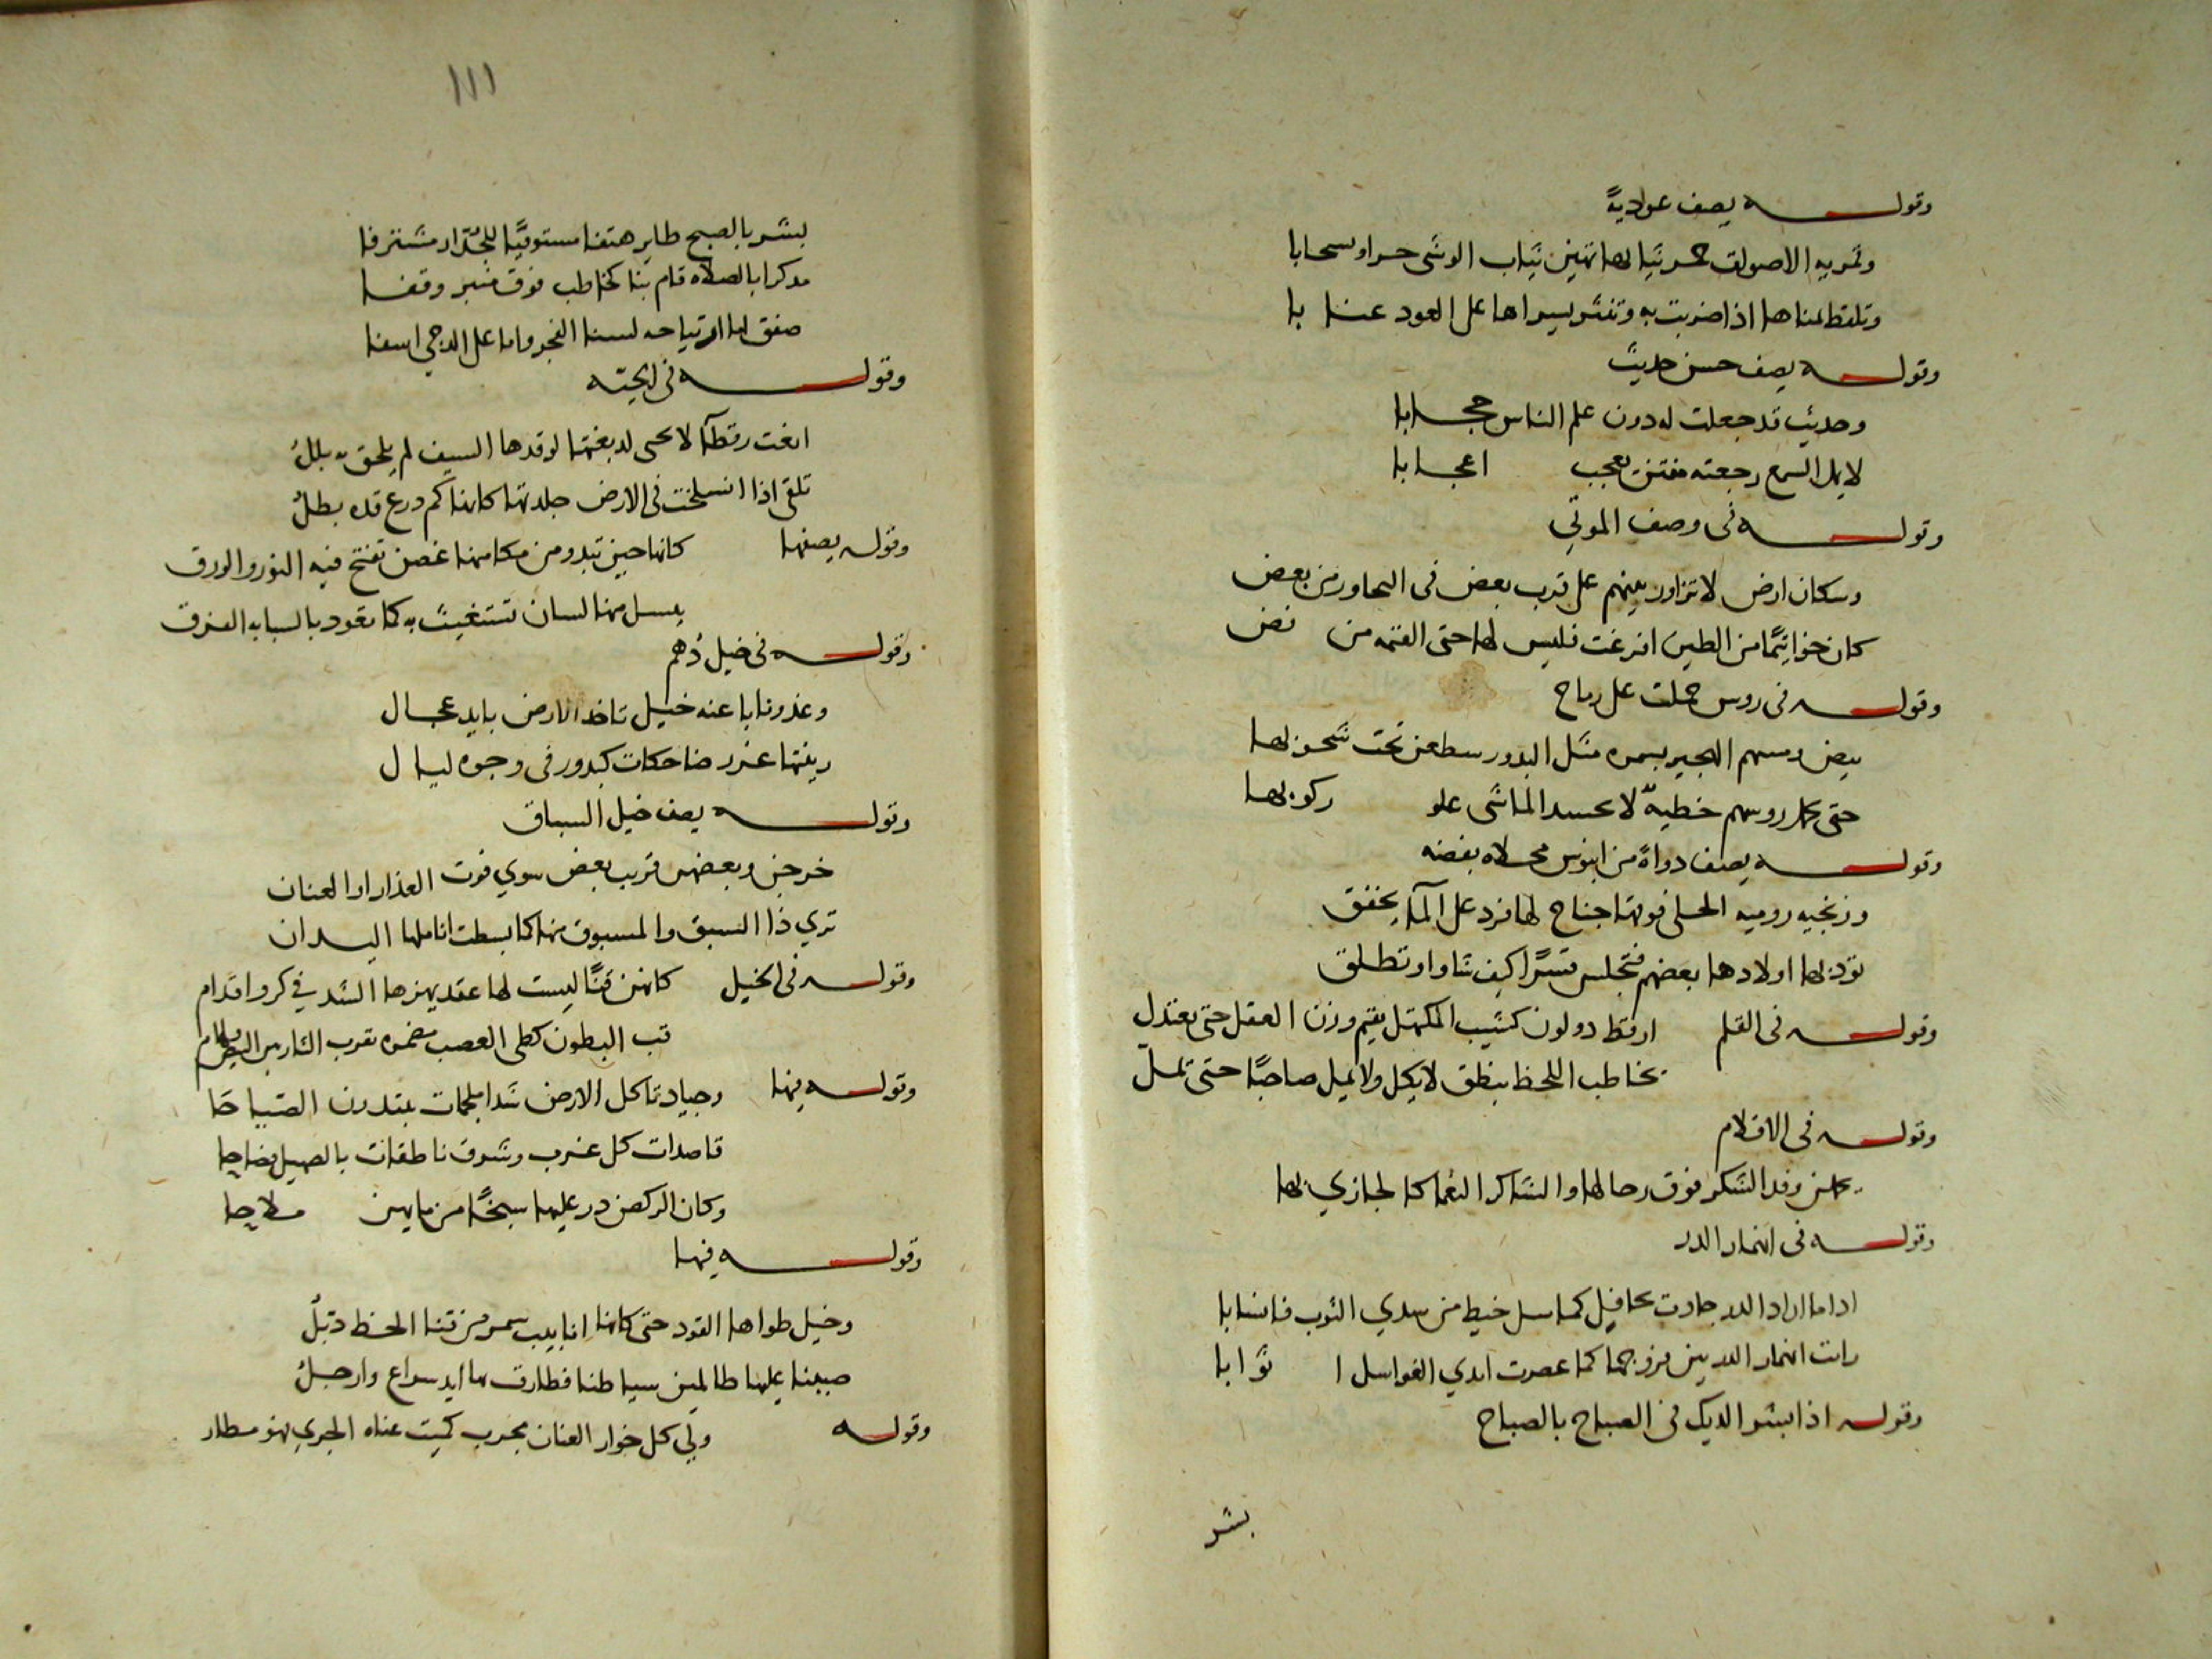 وقوله يصف عوادية
وقمريه الاصوات حمر ثيابها تهين ثياب الوشى جرا وسحابا
وتلقط يمناها اذا ضربت به وتنثر يسراها على العود عنابا
وقوله يصف حسن حديث
وحديث قد جعلت له دون علم الناس حجابا
لا يمل السمع رجعته مفتن يعجب اعجابا
وقوله فى وصف الموتي
وسكان ارض لا تزاور بينهم على قرب بعض فى التجاور من بعض
كان خواتيمًا من الطين افرغت فليس لها حتى القيمه من فض
وقوله فى روس حملت على رماح
بيض وسمهم الهجير بسمره مثل البدور سطعن تحت شحوبها
حتى تحمل روسهم خطيةٌ لا يحسد الماشى علو ركوبها
وقوله يصف دواة من ابنوس محلاه بفضه
وزنجيه روميه الحلى فوقها جناح لها فرد على الما يخفق
تود بها اولادها بعضهم فتجلس قسرًا كيف شاوا وتطلق
وقوله فى القلم ارقط دو لون كشيب المكتهل يقيم وزن العقل حتى يعتدل
يخاطب اللحظ بنطق لا يكل ولا يمل صاحبًا حتى يمل
وقوله فى الاقلام
يحملن وفد الشكر فوق رحالها والشاكر النعما كالمجازي بها
وقوله فى انهمار الدر
اذا ما اراد الدر جادت بحافيل كما سل خيط من سدي الثوب فانسابا
رايت انهمار الدر بين فروجها كما عصرت ايدي الغواسل اثوابا
وقوله اذا بشر الديك فى الصباح بالصباح
بشر
١١١
بشر بالصبح طاير هتفا مستوفيًا للجدار مشترفا
مذكرا بالصلاه قام بنا كخاطب فوق منبر وقفا
صفق اما ارتياحه لسنا الفجر واما على الدجي اسفا
وقوله فى الحيته
انعت رقطآ لا يحى لديغها لو قدها السيف لم يلحق به بللُ
تلقى اذا انسلخت فى الارض جلدتها كانها كم درع قده بطلُ
وقوله يصفها كانها حين تبدو من مكامنها غصن تفتح فيه النور والورق
يسل منها لسان تستغيث به كما تعود بالسبابه الفرق
وقوله فى خيل دُهم
وغدونا باعنه خيل تاخذ الارض بايد عجال
زينتها غرر ضاحكات كبدور فى وجوه ليال
وقوله يصف خيل السباق
خرجن وبعضهن قريب بعض سوي فوت العذار او العنان
تري ذا السبق والمسبوق منها كما بسطت اناملها اليدان
وقوله فى الخيل كانهن قنًا ليست لها عقد يهزها الشد في كر واقدام
قب البطون كطى العصب مضمره تقرب الثار بين البيض والهام
وقوله فيها وجياد تاكل الارض شدا ملجمات يبتدرن الصياحا
قاصدات كل غرب وشرق ناطقات بالصهيل فصاحا
وكان الركض در عليها سبخًا من مايهن ملاحا
وقوله فيها
وخيل طواها القود حتى كانها انابيب سمر من قنا الخط ذبّلُ
صببنا عليها ظالمين سياطنا فطارت بها ايد سراع وارجلُ
وقوله ولي كل خوار العنان مجرب كميت عناه الجري فهو مطار